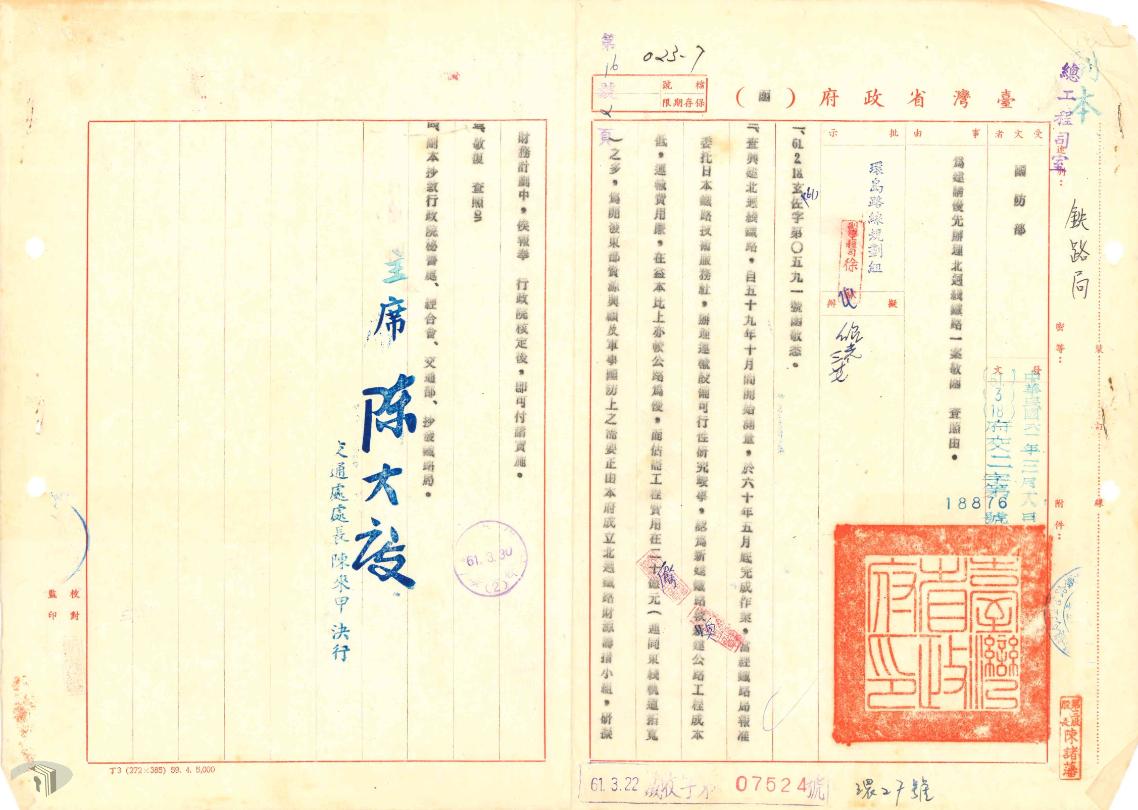 副本
總工程司室
鉄路局
速別：
密等：
附件：
裝
訂
線
臺灣省政府（函）
檔號
保存期限
023-7
第16號2頁
受文者
國防部
事由
為建請優先辦理北迴綫鐵路一案敬函　查照由。
批示
環島路線規劃組
擬辦
發文
中華民國六十一年三月十八日
61 3 18 府交二字第 號
18876
一、61.2.18.玄佐字第〇五九一號函敬悉。
二、查興建北迴綫鐵路，自五十九年十月間開始測量，於六十年五月底完成作業，當經鐵路局報准
委托日本鐵路技術服務社，辦理運輸設備可行性研究竣事，認為新建鐵路較擴建公路工程成本
低，運輸費用廉，在益本比上亦較公路為優，而估計工程費用在二十餘元（連同東綫軌道拓寬
）之多，為開發東部資源與顧及軍事國防上之需要正由本府成立北迴鐵路財源籌措小組，研擬
財務計劃中，俟報奉　行政院核定後，即可付諸實施。
三、敬復　查照。
四、副本抄致行政院秘書處、經合會、交通部、抄發鐵路局。
主席　陳大慶
交通處處長陳來甲決行
61.3.30
(2)
校對
監印
臺灣省政府印
第二股股長陳諸藩
丁3 (272×385) 59. 4. 5,000
61. 3. 22
07524號
環27號